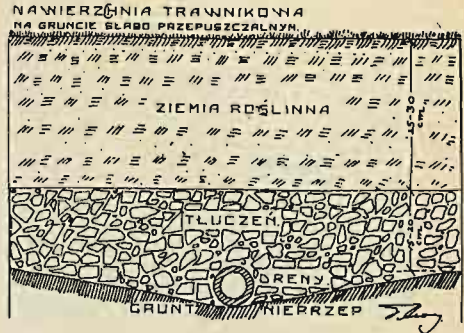 NAWIERZCHNIA TRAWNIKOWA
NA GRUNCIE SŁABO PRZEPUSZCZALNYM.
ZIEMIA ROŚLINNA
25-30
cm.
TŁUCZEŃ
cm.
DRENY
GRUNT NIEPRZEP